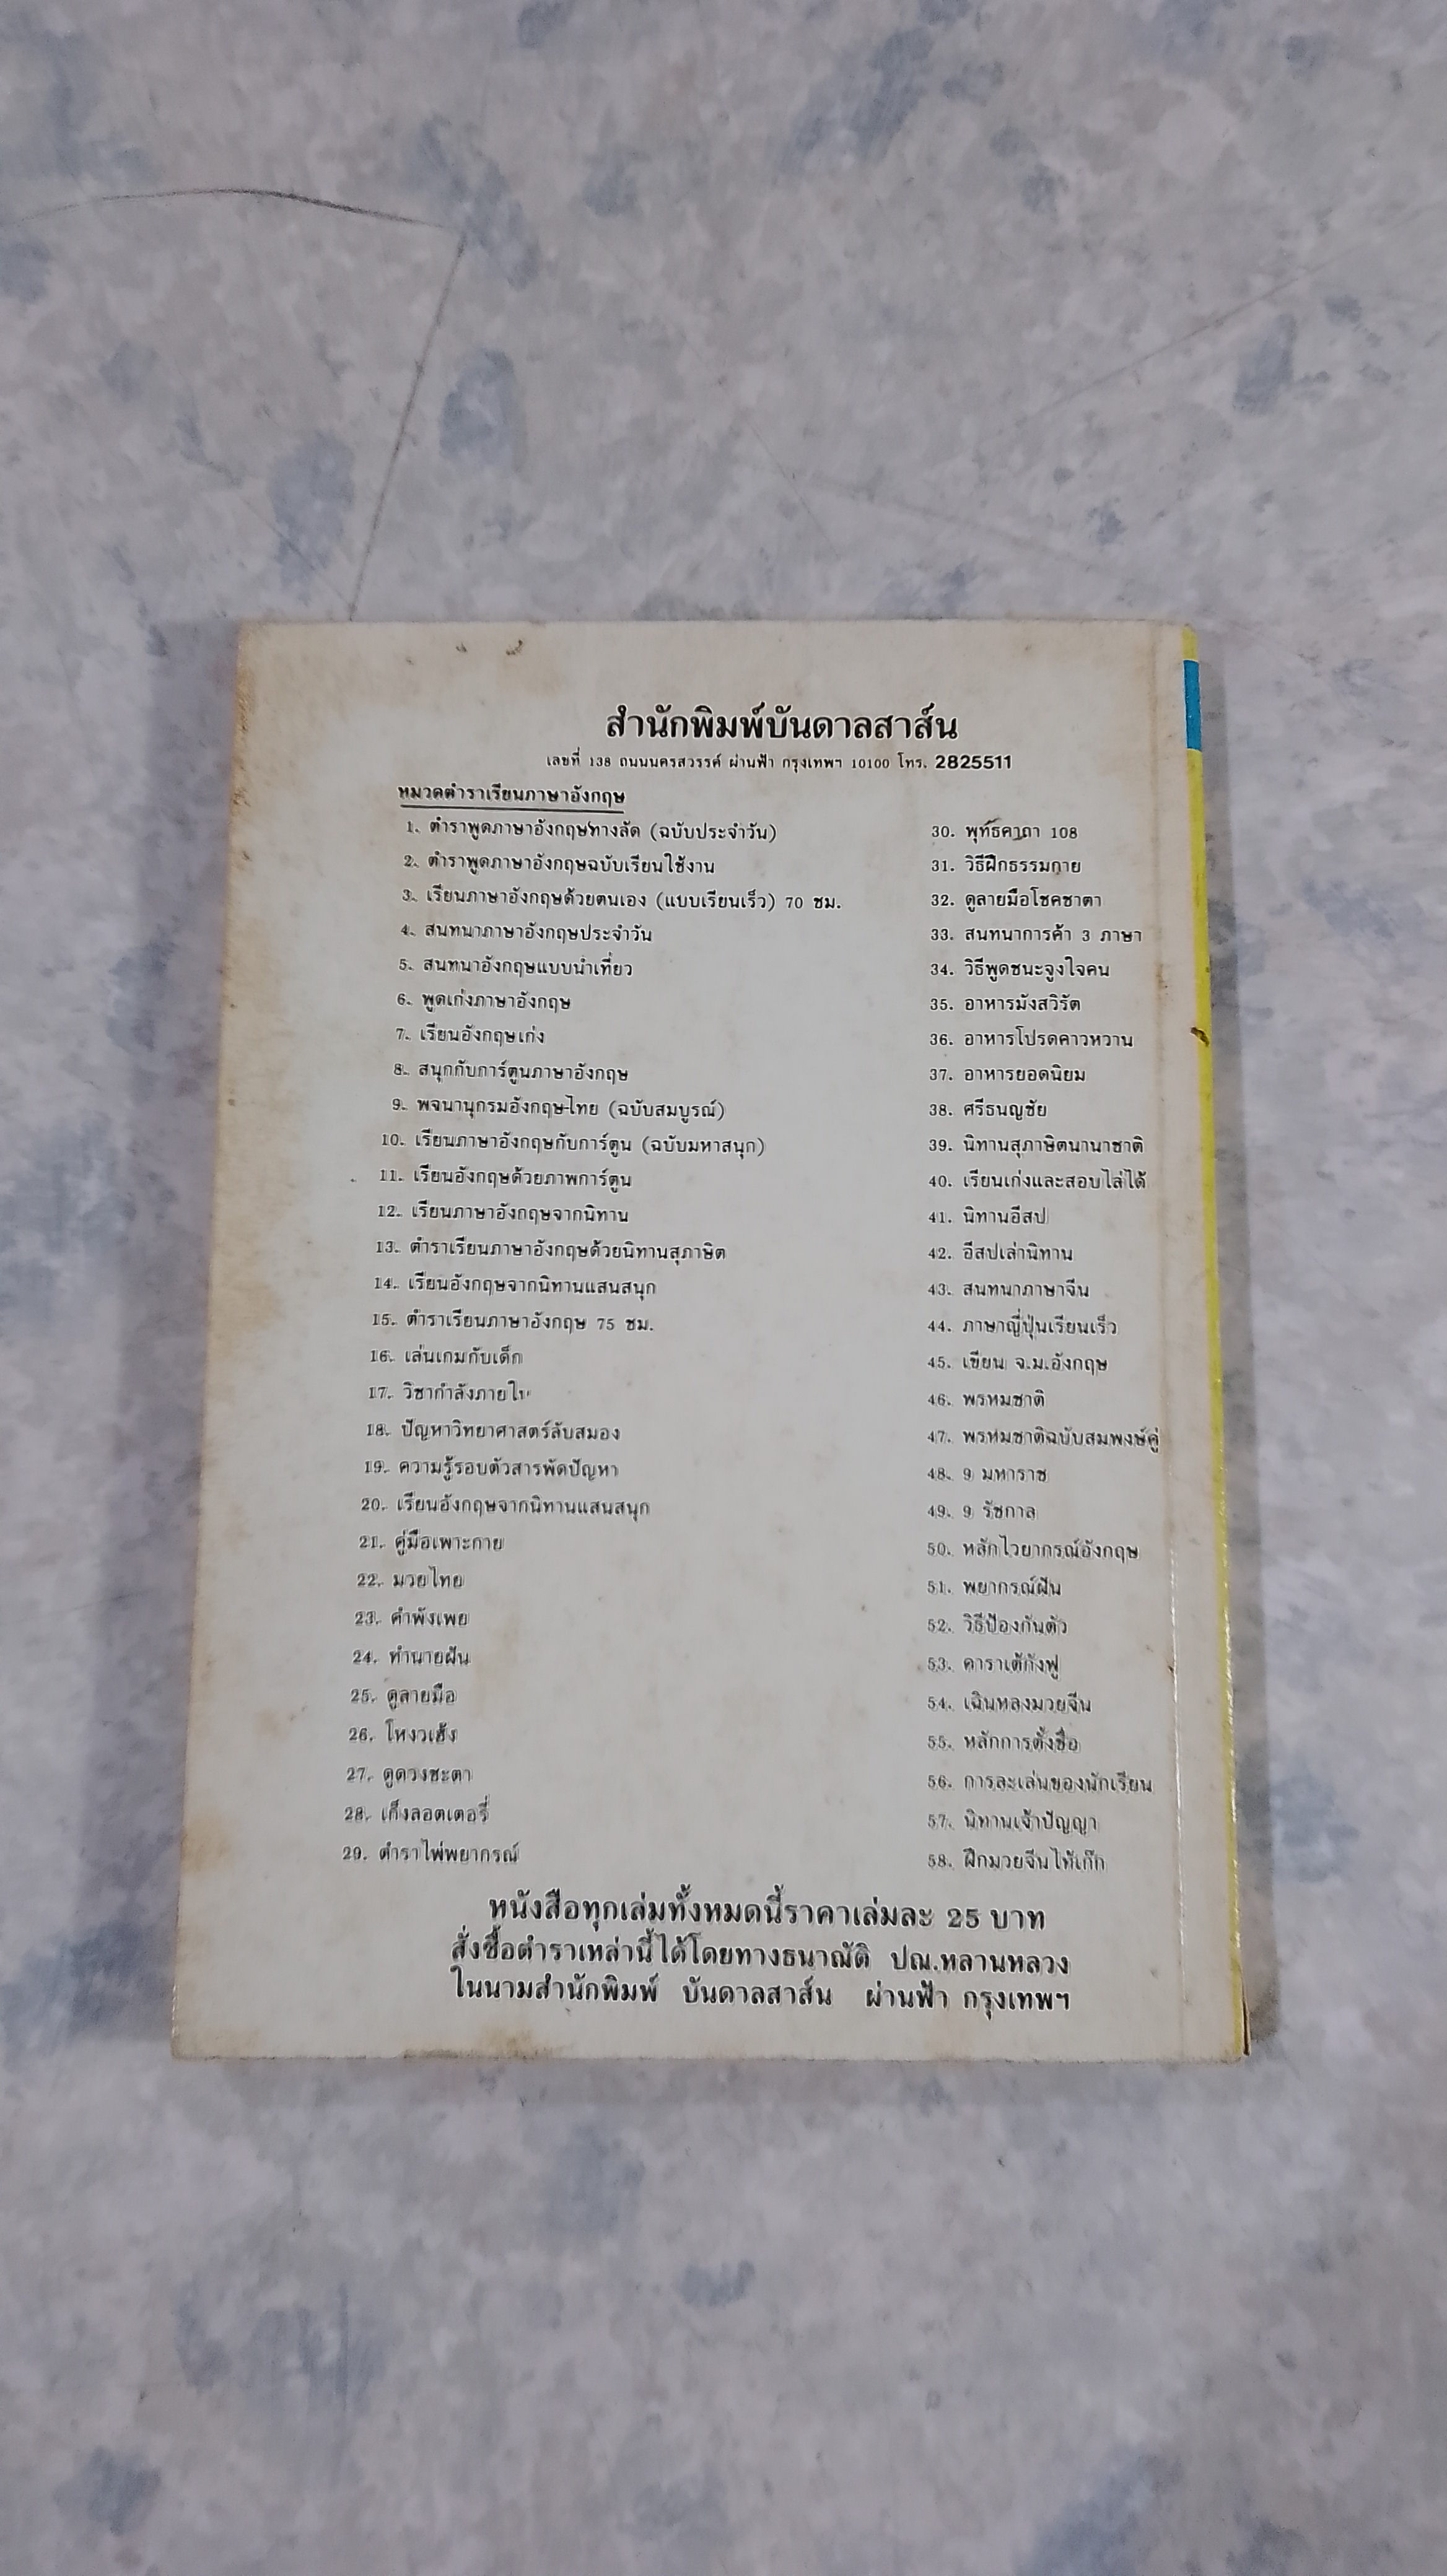 สำนักพิมพ์บันดาลสาส์น
เลขที่ 138 ถนนนครสวรรค์ ผ่านฟ้า กรุงเทพฯ 10100 โทร. 2825511
หมวดตำราเรียนภาษาอังกฤษ
1. ตำราพูดภาษาอังกฤษทางลัด (ฉบับประจำวัน)
2. ตำราพูดภาษาอังกฤษฉบับเรียนใช้งาน
3. เรียนภาษาอังกฤษด้วยตนเอง (แบบเรียนเร็ว) 70 ชม.
4. สนทนาภาษาอังกฤษประจำวัน
5. สนทนาอังกฤษแบบนำเที่ยว
6. พูดเก่งภาษาอังกฤษ
7. เรียนอังกฤษเก่ง
8. สนุกกับการ์ตูนภาษาอังกฤษ
9. พจนานุกรมอังกฤษ-ไทย (ฉบับสมบูรณ์)
10. เรียนภาษาอังกฤษกับการ์ตูน (ฉบับมหาสนุก)
11. เรียนอังกฤษด้วยภาพการ์ตูน
12. เรียนภาษาอังกฤษจากนิทาน
13. ตำราเรียนภาษาอังกฤษด้วยนิทานสุภาษิต
14. เรียนอังกฤษจากนิทานแสนสนุก
15. ตำราเรียนภาษาอังกฤษ 75 ชม.
16. เล่นเกมกับเด็ก
17. วิชากำลังภายใน
18. ปัญหาวิทยาศาสตร์ลับสมอง
19. ความรู้รอบตัวสารพัดปัญหา
20. เรียนอังกฤษจากนิทานแสนสนุก
21. คู่มือเพาะกาย
22. มวยไทย
23. คำพังเพย
24. ทำนายฝัน
25. ดูลายมือ
26. โหงวเฮ้ง
27. ดูดวงชะตา
28. เก็งลอตเตอรี่
29. ตำราไพ่พยากรณ์
30. พุทธคาถา 108
31. วิธีฝึกธรรมกาย
32. ดูลายมือโชคชาตา
33. สนทนาการค้า 3 ภาษา
34. วิธีพูดชนะจูงใจคน
35. อาหารมังสวิรัต
36. อาหารโปรดคาวหวาน
37. อาหารยอดนิยม
38. ศรีธนญชัย
39. นิทานสุภาษิตนานาชาติ
40. เรียนเก่งและสอบไล่ได้
41. นิทานอีสป
42. อีสปเล่านิทาน
43. สนทนาภาษาจีน
44. ภาษาญี่ปุ่นเรียนเร็ว
45. เขียน จ.ม.อังกฤษ
46. พรหมชาติ
47. พรหมชาติฉบับสมพงษ์คู่
48. 9 มหาราช
49. 9 รัชกาล
50. หลักไวยากรณ์อังกฤษ
51. พยากรณ์ฝัน
52. วิธีป้องกันตัว
53. คาราเต้กังฟู
54. เฉินหลงมวยจีน
55. หลักการตั้งชื่อ
56. การละเล่นของนักเรียน
57. นิทานเจ้าปัญญา
58. ฝึกมวยจีนไท้เก๊ก
หนังสือทุกเล่มทั้งหมดนี้ราคาเล่มละ 25 บาท
สั่งซื้อตำราเหล่านี้ได้โดยทางธนาณัติ ปณ.หลานหลวง
ในนามสำนักพิมพ์ บันดาลสาส์น ผ่านฟ้า กรุงเทพฯ